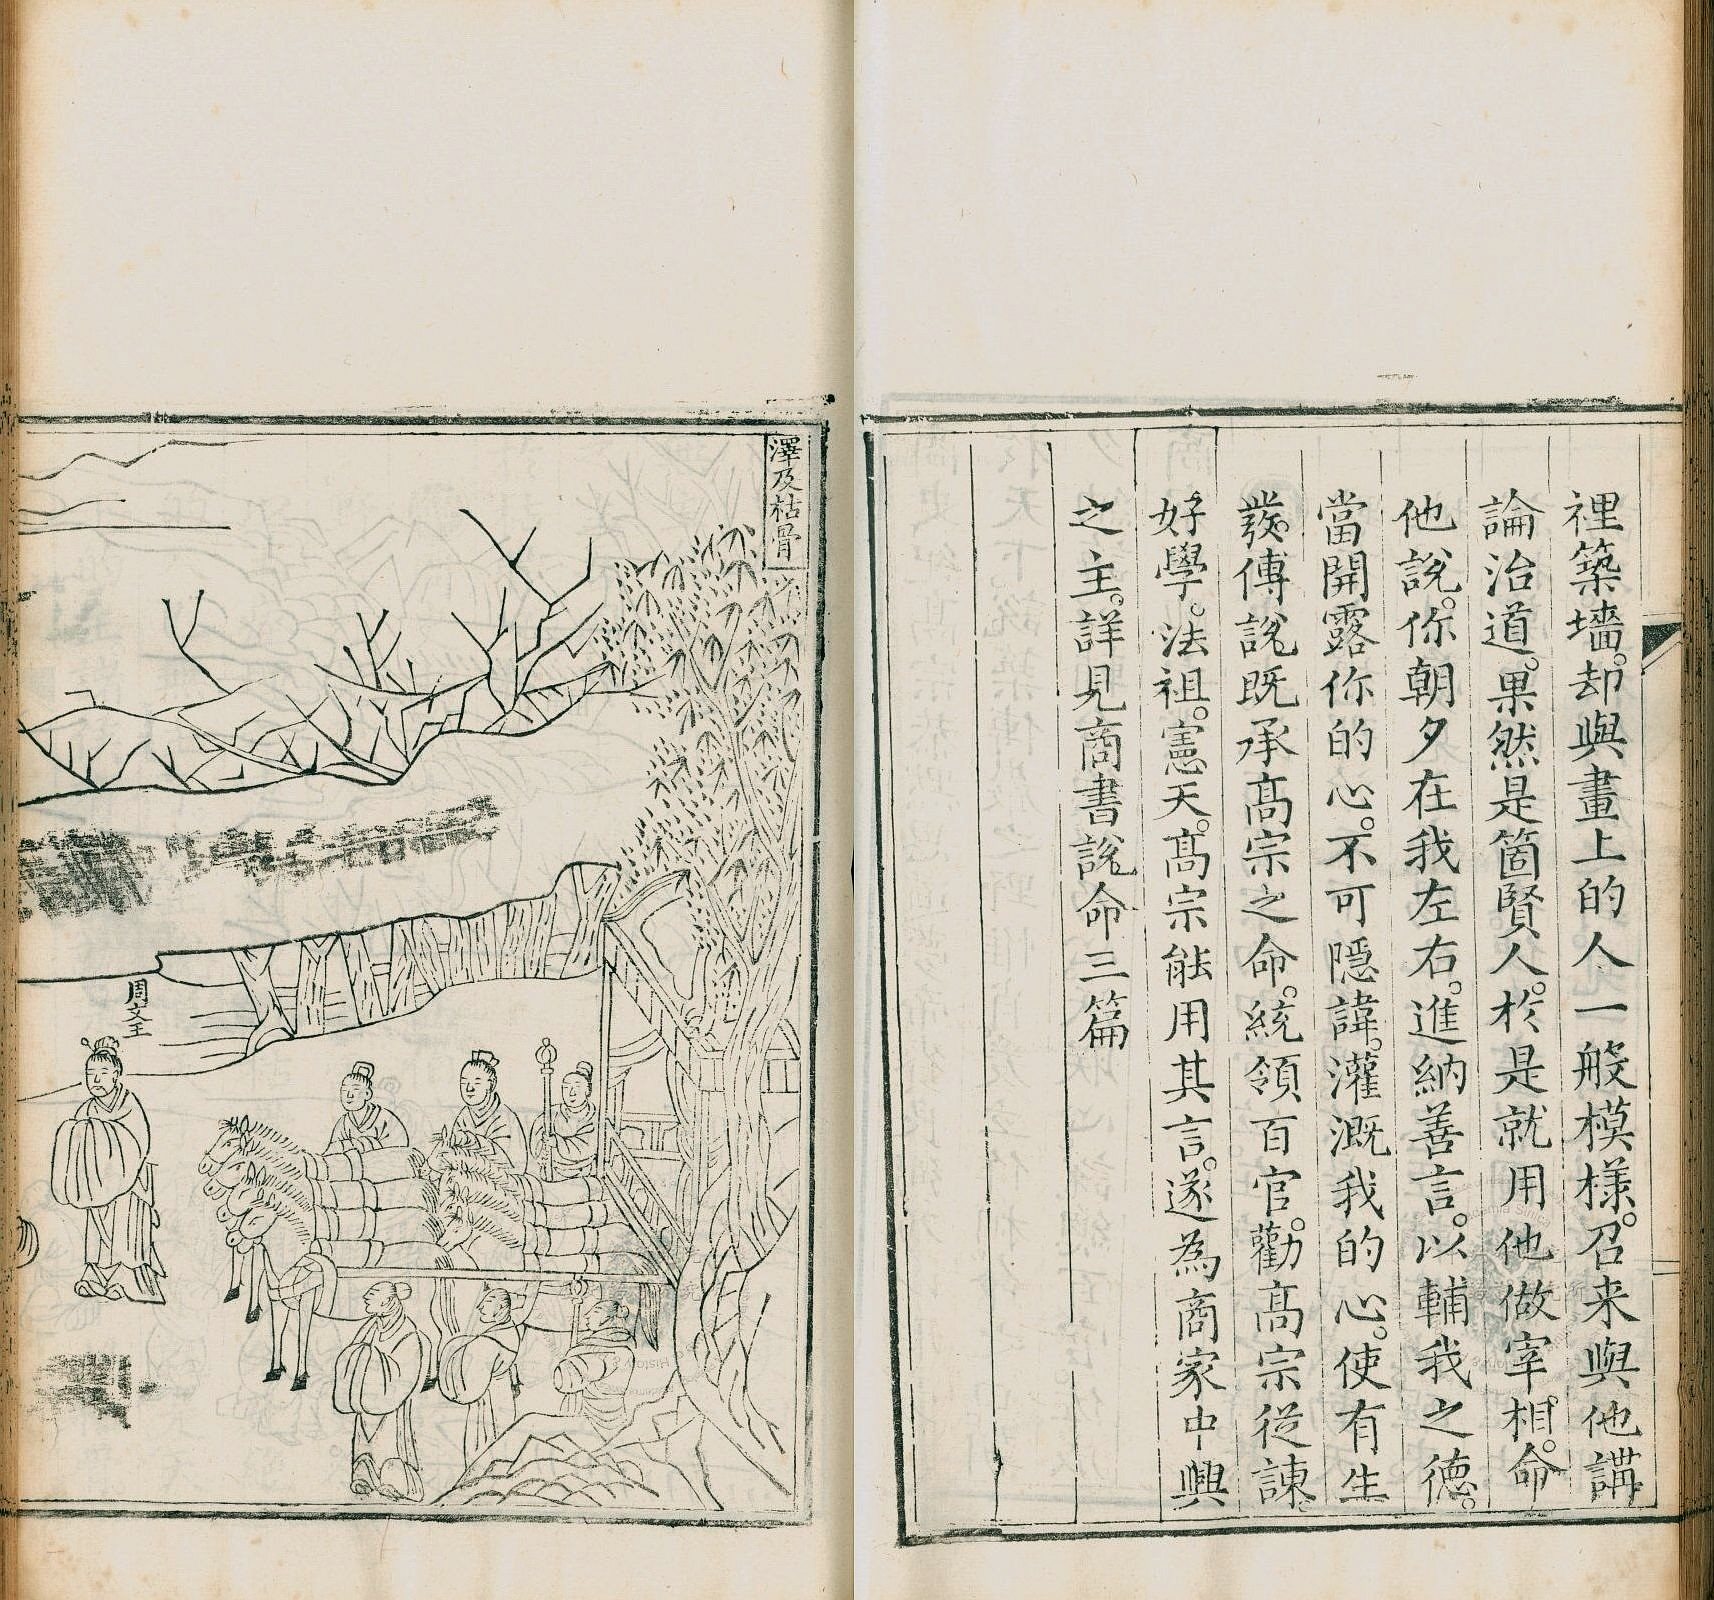 裡築墻。却與畫上的人一般模樣。召来與他講
論治道。果然是箇賢人。於是就用他做宰相。命
他說。你朝夕在我左右。進納善言。以輔我之德。
當開露你的心。不可隱諱。灌溉我的心。使有生
發。傅說既承高宗之命。統領百官。勸高宗從諫
好學。法祖。憲天。高宗能用其言。遂為商家中興
之主。詳見商書說命三篇
澤及枯骨
周文王